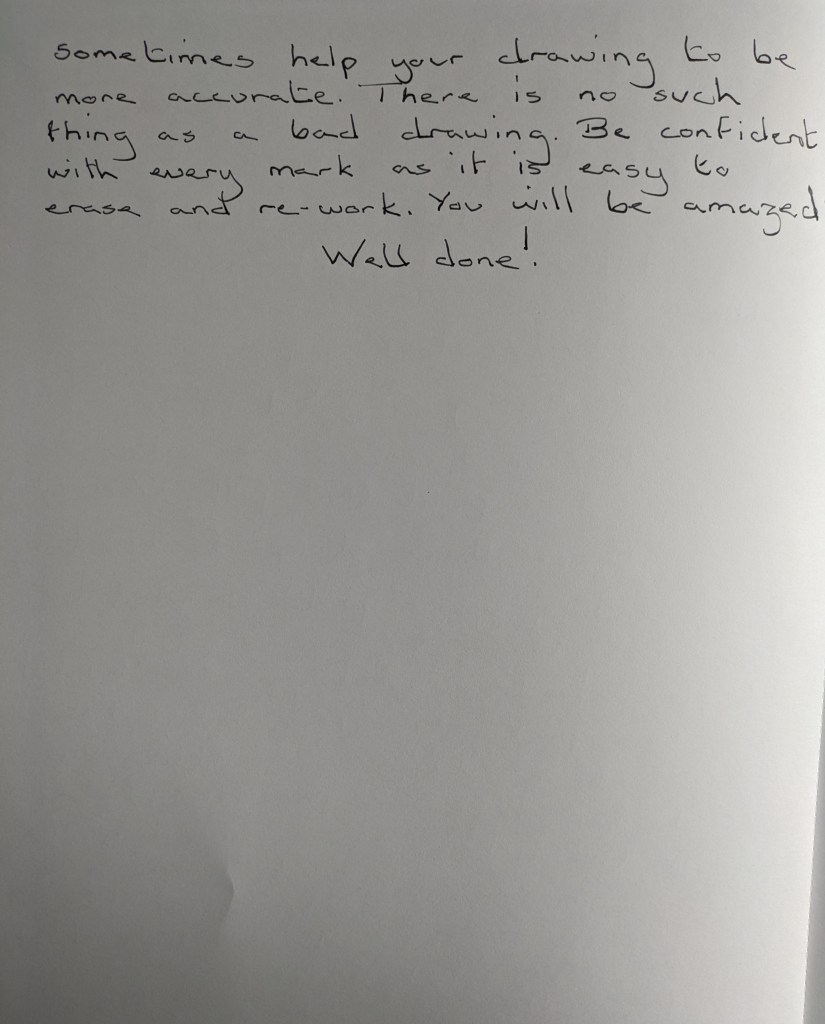 sometimes help your drawing to be
more accurate. There is no such
thing as a bad drawing. Be confident
with every mark as it is easy to
erase and re-work. You will be amazed
Well done!